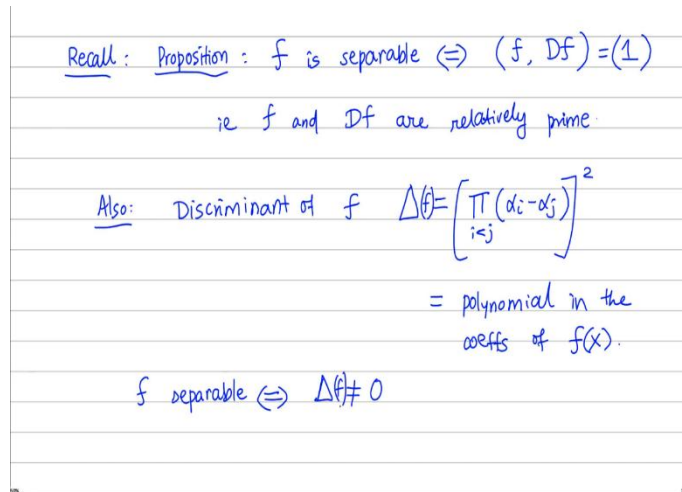 Recall : Proposition : f is separable ⇔ (f, Df) = (1)
ie f and Df are relatively prime.
Also: Discriminant of f Δ(f) = [∏_{i<j} (αi - αj)]²
= polynomial in the
coeffs of f(x).
f separable ⇔ Δ(f) ≠ 0